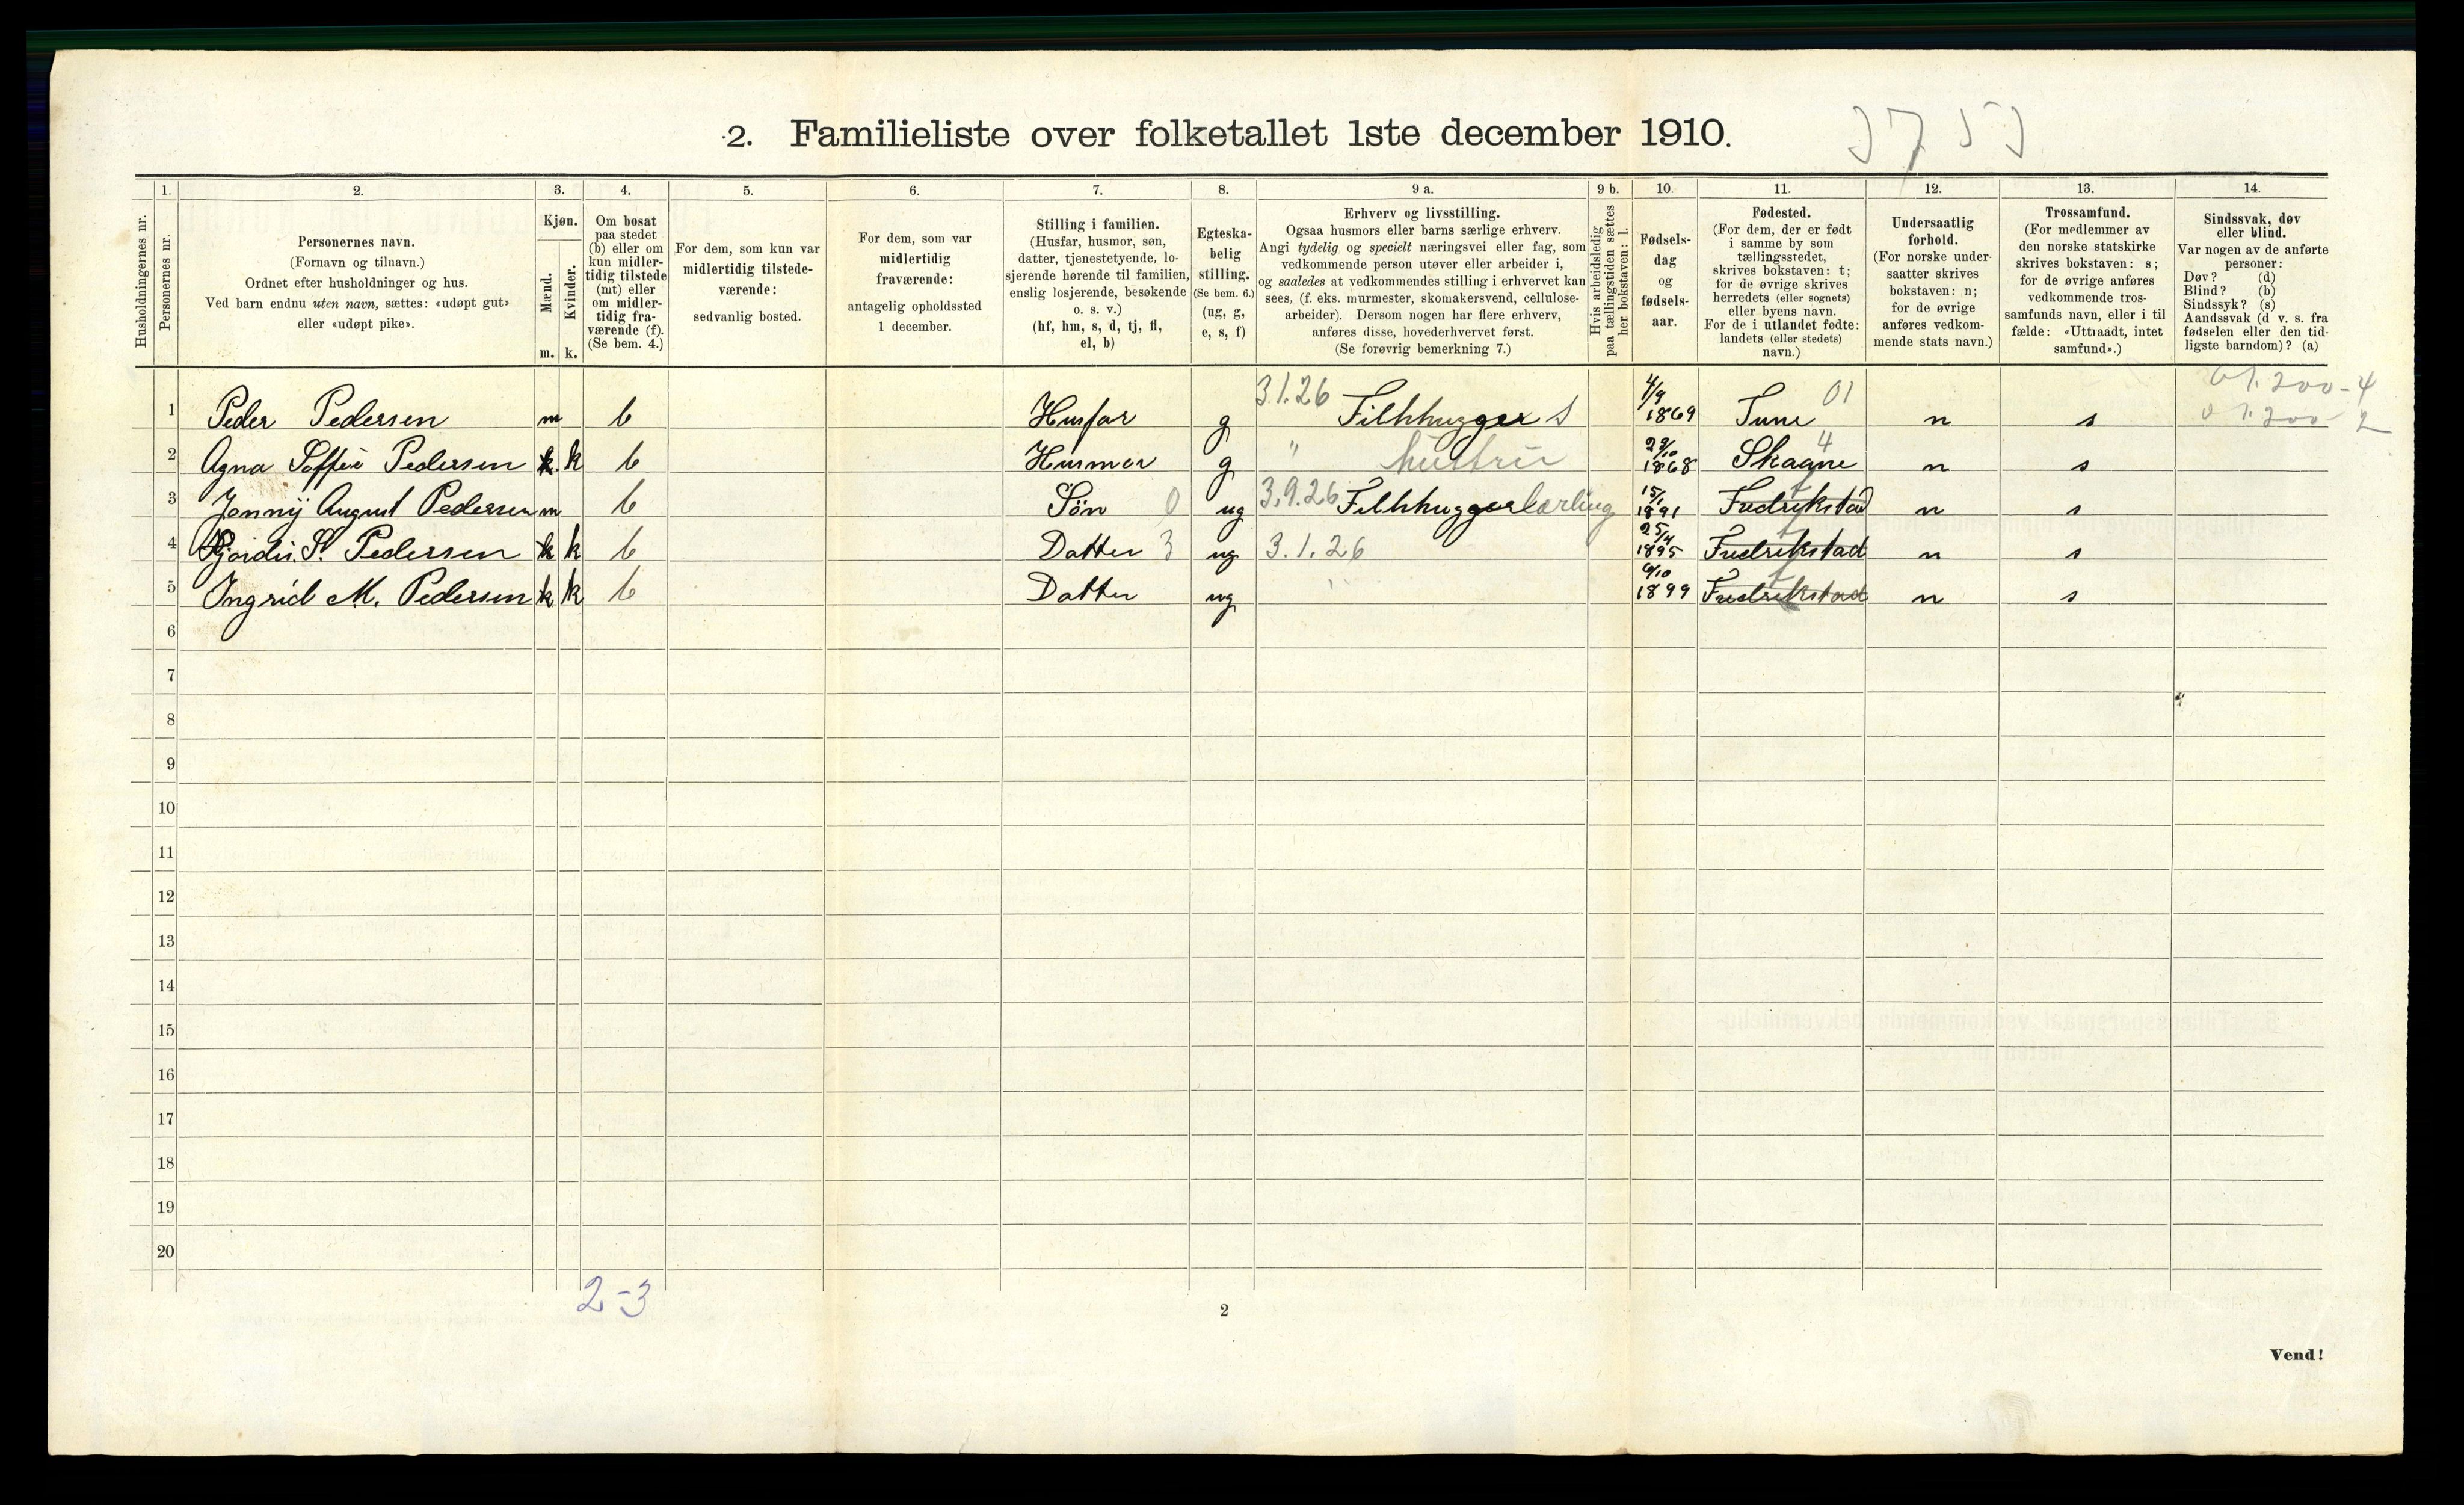 2. Familieliste over folketallet 1ste december 1910.
3753
Husholdningernes nr.
1.
Personernes nr.
2.
Personernes navn.
(Fornavn og tilnavn.)
Ordnet efter husholdninger og hus.
Ved barn endnu uten navn, sættes: «udøpt gut»
eller «udøpt pike».
3.
Kjøn.
Mænd.
Kvinder.
m. k.
4.
Om bosat
paa stedet
(b) eller om
kun midler-
tidig tilstede
(mt) eller
om midler-
tidig fra-
værende (f).
(Se bem. 4.)
5.
For dem, som kun var
midlertidig tilstede-
værende:
sedvanlig bosted.
6.
For dem, som var
midlertidig
fraværende:
antagelig opholdssted
1 december.
7.
Stilling i familien.
(Husfar, husmor, søn,
datter, tjenestetyende, lo-
sjerende hørende til familien,
enslig losjerende, besøkende
o. s. v.)
(hf, hm, s, d, tj, fl,
el, b)
8.
Egteska-
belig
stilling.
(Se bem. 6.)
(ug, g,
e, s, f)
9 a.
Erhverv og livsstilling.
Ogsaa husmors eller barns særlige erhverv.
Angi tydelig og specielt næringsvei eller fag, som
vedkommende person utøver eller arbeider i,
og saaledes at vedkommendes stilling i erhvervet kan
sees, (f. eks. murmester, skomakersvend, cellulose-
arbeider). Dersom nogen har flere erhverv,
anføres disse, hovederhvervet først.
(Se forøvrig bemerkning 7.)
9 b.
Hvis arbeidsledig
paa tællingstiden sættes
her bokstaven: l.
10.
Fødsels-
dag
og
fødsels-
aar.
11.
Fødested.
(For dem, der er født
i samme by som
tællingsstedet,
skrives bokstaven: t;
for de øvrige skrives
herredets (eller sognets)
eller byens navn.
For de i utlandet fødte:
landets (eller stedets)
navn.)
12.
Undersaatlig
forhold.
(For norske under-
saatter skrives
bokstaven: n;
for de øvrige
anføres vedkom-
mende stats navn.)
13.
Trossamfund.
(For medlemmer av
den norske statskirke
skrives bokstaven: s;
for de øvrige anføres
vedkommende tros-
samfunds navn, eller i til
fælde: «Uttraadt, intet
samfund».)
14.
Sindssvak, døv
eller blind.
Var nogen av de anførte
personer:
Døv? (d)
Blind? (b)
Sindssyk? (s)
Aandssvak (d v. s. fra
fødselen eller den tid-
ligste barndom)? (a)
1 Peder Pedersen m b Husfar g 3.1.26 Filhhugger s 4/9 1869 Tune 01 n s
2 Agna Soffie Pedersen k k b Husmor g " hustru 29/10 1868 Skagne 4 n s
3 Jonny August Pedersen m b Søn 0 ug 3.9.26 Filhhuggerlærling 15/1 1891 Fredrikstad t n s
4 Hjordis. S. Pedersen k k b Datter 3 ug 3.1.26 25/4 1895 Fredrikstad t n s
5 Ingrid M. Pedersen k k b Datter ug " 6/10 1899 Fredrikstad t n s
6
7
8
9
10
11
12
13
14
15
16
17
18
19
20
2-3
2
Vend!